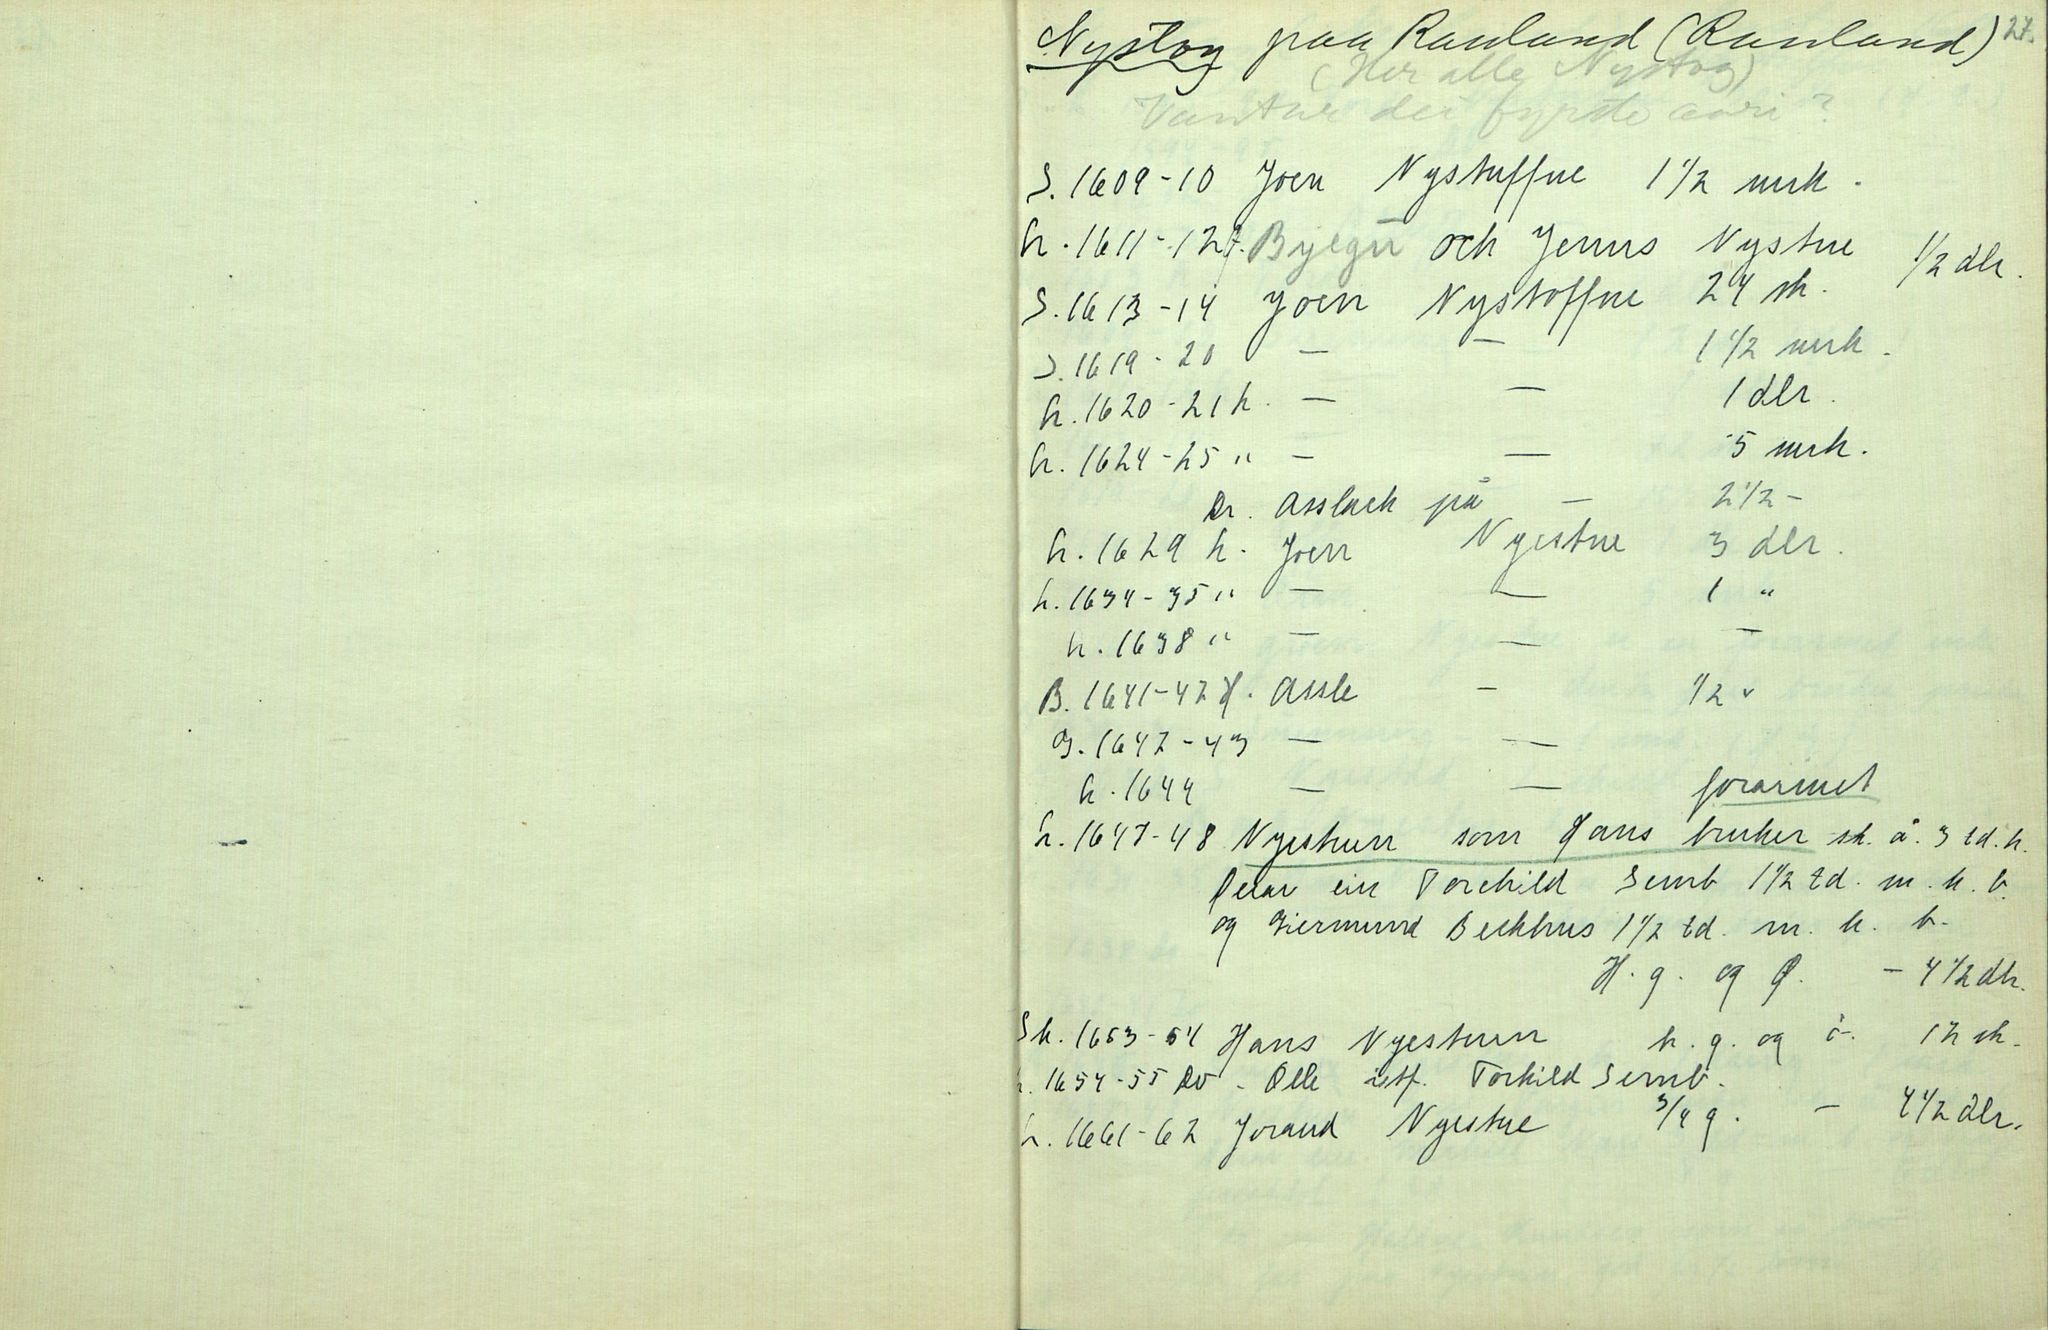 Nystog paa Rauland (Rauland) 27.
(Her alle Nystog)
Vantar dei fyrste aari?
S. 1609-10 Joen Nystuffue 1 1/2 mrk.
h. 1611-12 Byegn och Jenns Nystue 1/2 dlr.
S. 1613-14 Joen Nystoffue 24 sk.
S. 1619-20 — — 1 1/2 mrk.
h. 1620-21 h. — — 1 dlr.
h. 1624-25 " — — 5 mrk.
Dr. Asslack på — 2 1/2 -
h. 1629 h. Joen Nyestue 3 dlr.
h. 1634-35 " — — 1 "
h. 1638 " — — —
B. 1641-42 H. Assle — 1/2 "
G. 1642-43 — —
h. 1644 — — forarmet
h. 1647-48 Nyestuen som Hans bruker sk. å. 3 td. k.
Derav ein Torchild Semb 1 1/2 td. m. k. b.
og Giermund Beckhus 1 1/2 td. m. k. b.
H. g. og Ø. - 4 1/2 dlr.
Sk. 1653-54 Hans Nyestuen h. g. og ö. 12 sk.
h. 1654-55 Do - Olle istf. Torkild Semb.
h. 1661-62 Jorand Nyestue 3/4 g. — 4 1/2 dlr.